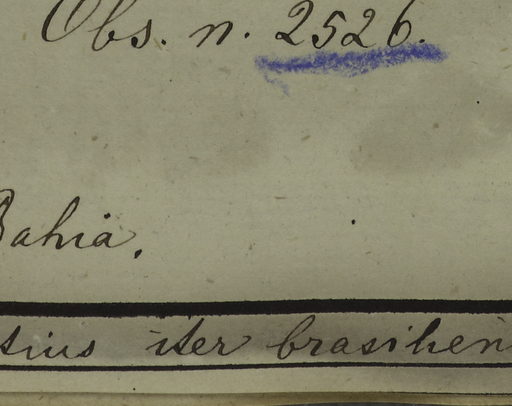 Obs. n. 2526.
Bahia.
sius iter brasilien